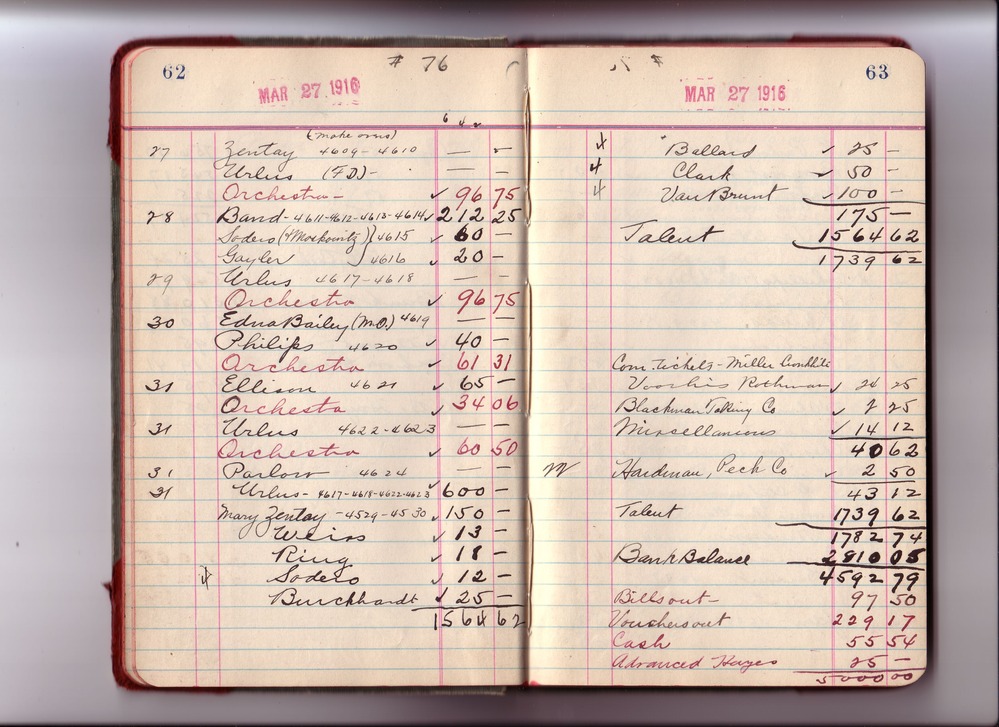 62
# 76
MAR 27 1916
(make overs)
27 Zentay 4609-4610 — —
Urlus (F.D.) - — —
Orchestra - ✓ 96 75
28 Band - 4611-4612-4613-4614 ✓ 212 25
Sodero (& Moskowitz) } 4615 ✓ 60 —
Gayler } 4616 ✓ 20 —
29 Urlus 4617-4618 — —
Orchestra ✓ 96 75
30 Edna Bailey (M.O.) 4619 — —
Philips 4620 ✓ 40 —
Orchestra ✓ 61 31
31 Ellison 4621 ✓ 65 —
Orchesta ✓ 34 06
31 Urlus 4622-4623 — —
Orchestra ✓ 60 50
31 Parlow 4624 — —
31 Urlus - 4617-4618-4622-4623 ✓ 600 —
Mary Zentay - 4529-4530 ✓ 150 —
Weiss ✓ 13 —
Ring ✓ 18 —
4 Sodero ✓ 12 —
Burckhardt ✓ 25 —
1564 62
63
MAR 27 1916
4 Ballard ✓ 25 —
4 Clark ✓ 50 —
4 Van Brunt ✓ 100 —
175 —
Talent 1564 62
1739 62
Com. tickets - Miller
Rothman ✓ 24 25
Blackman Talking Co ✓ 2 25
Miscellaneous ✓ 14 12
40 62
Hardman, Peck Co ✓ 2 50
43 12
Talent 1739 62
1782 74
Bank Balance 2810 05
4592 79
Bills out - 97 50
Vouchers out 229 17
Cash 55 54
Advanced Hayes 25 —
5000 00